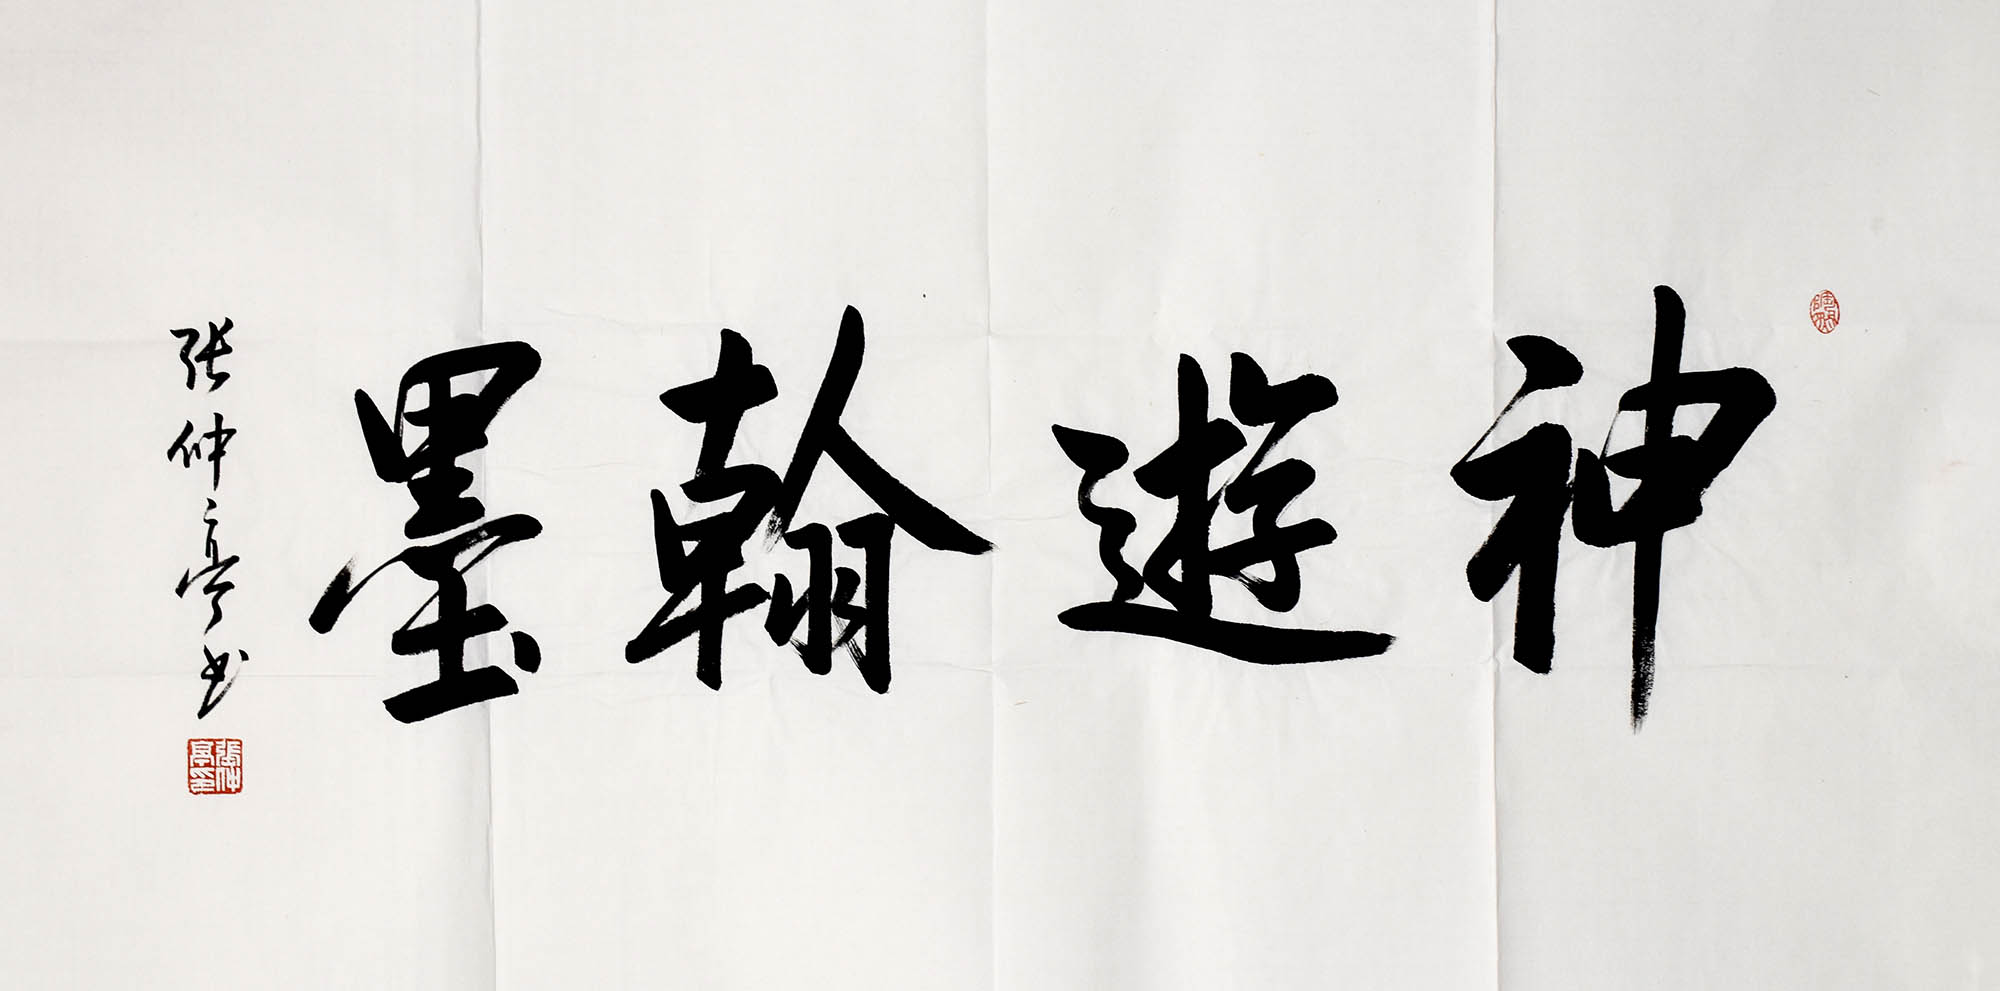 神遊翰墨
张仲亭书
張仲亭印